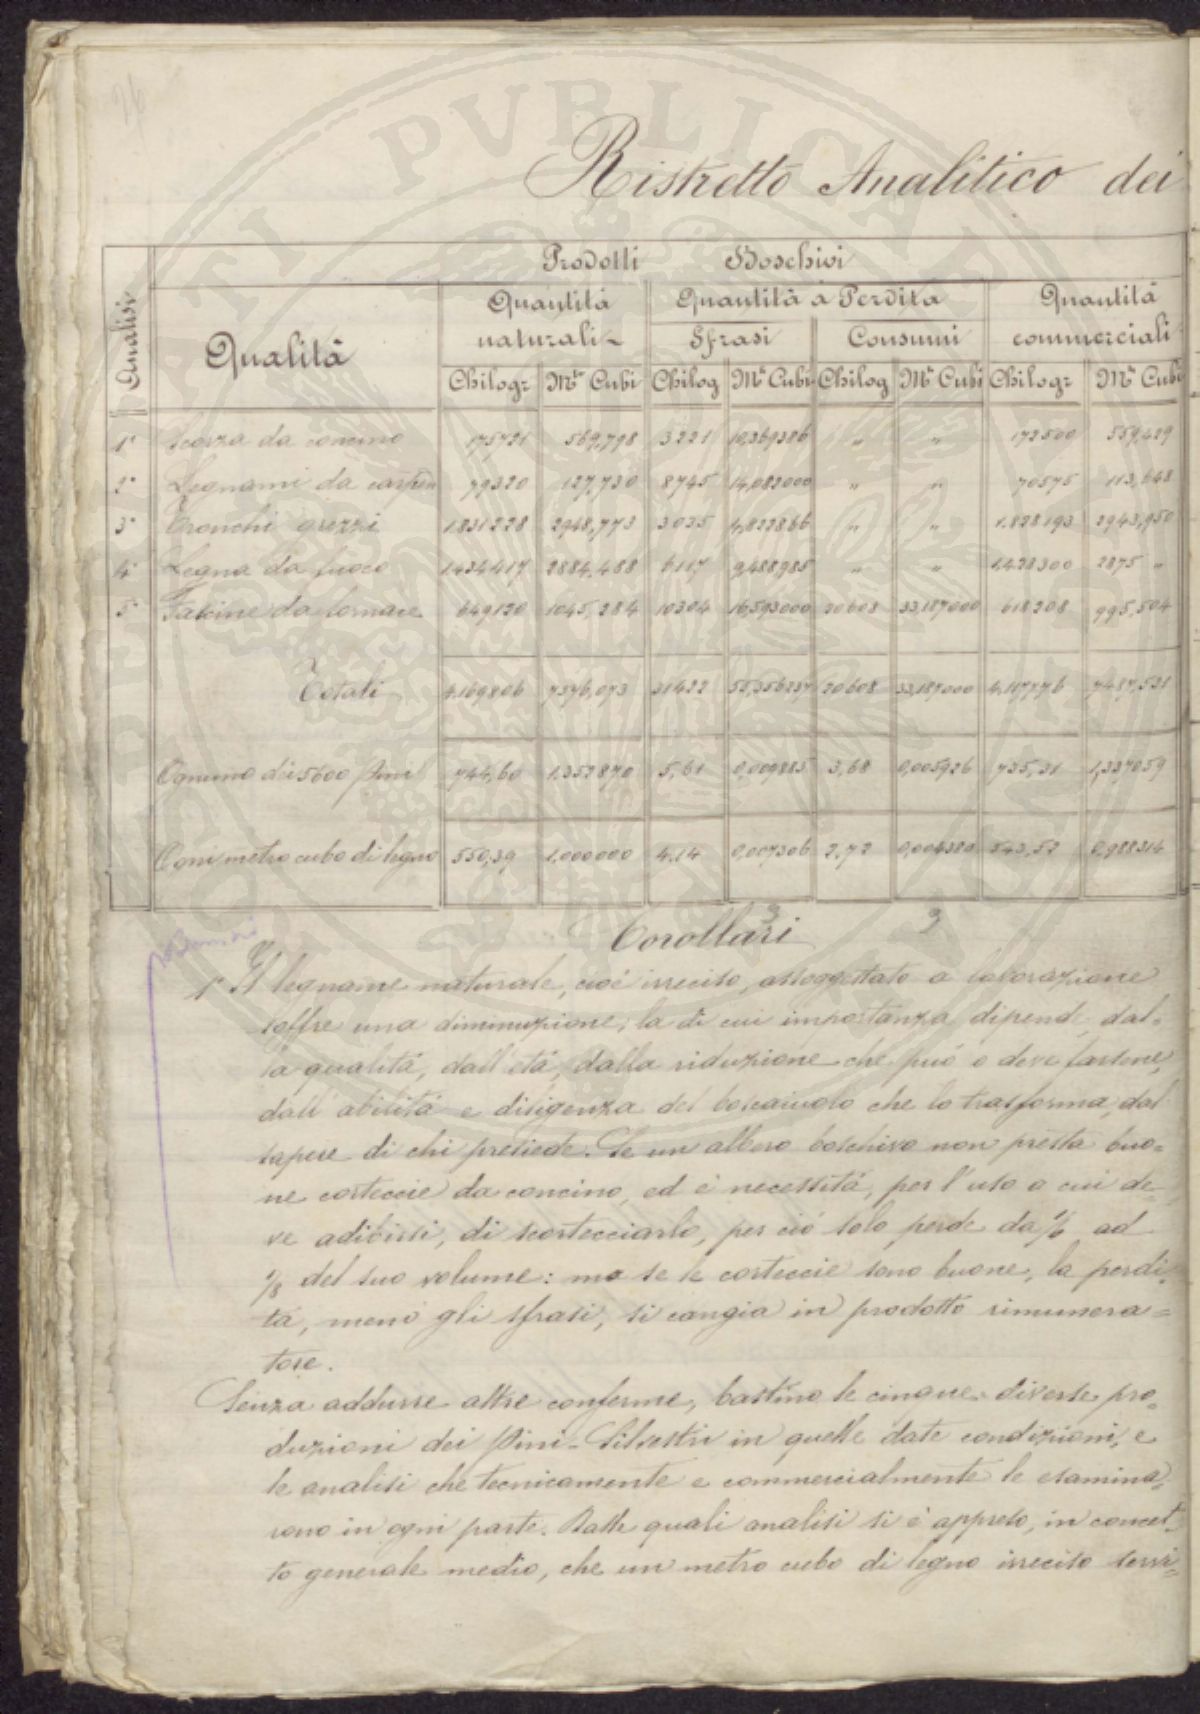 Ristretto Analitico dei
Prodotti Boschivi
Analisi
Qualità
Quantità naturali
Quantità a Perdita
Quantità commerciali
Sfrasi
Consumi
Chilogr Mti Cubi Chilog Mti Cubi Chilog Mti Cubi Chilogr Mti Cubi
1° Scorza da concino 175721 569,798 3221 10,369386 " " 172500 559,429
2° Legnami da 79320 127,730 8745 14,082000 " " 70575 113,648
3° Tronchi grezzi 1.831228 2948,773 3035 4,822866 " " 1.828193 2943,950
4° Legna da fuoco 1.434417 2884,488 6117 9,488985 " " 1.428300 2875 "
5° Fascine da fornace 649120 1045,284 10304 16,593000 20608 33,187000 618208 995,504
Totali 4.169806 7576,073 31422 55,356237 20608 33,187000 4,117776 7487,531
Ognuno dei 5600 Pini 744,60 1.352870 5,61 0,009885 3,68 0,005926 735,31 1,337059
Ogni metro cubo di legno 550,39 1,000000 4.14 0,007306 2,72 0,004380 543,52 0,988314
Corollari
1° Il legname naturale, cioè irreciso, assoggettato a lavorazione
soffre una diminuzione; la di cui importanza dipende dal-
la qualità, dall'età, dalla riduzione che può o deve farsene,
dall'abilità e diligenza del boscaiuolo che lo trasforma, dal
sapere di chi presiede. Se un albero boschivo non presta buo-
ne corteccie da concino, ed è necessità, per l'uso a cui de-
ve adibirsi, di scortecciarlo, per ciò solo perde da ad
1/8 del suo volume: ma se le corteccie sono buone, la perdi-
ta, meno gli sfrasi, si cangia in prodotto rimunera-
tore.
Senza addurre altre conferme, bastino le cinque diverse pro-
duzioni dei Pini-Silvestri in quelle date condizioni, e
le analisi che tecnicamente e commercialmente le esamina-
rono in ogni parte. Dalle quali analisi si è appreso, in concet-
to generale medio, che un metro cubo di legno irreciso servi-